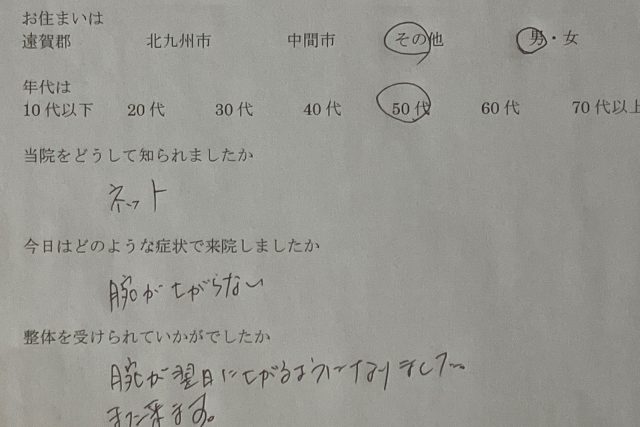 お住まいは
遠賀郡 北九州市 中間市 その他 男・女
年代は
10代以下 20代 30代 40代 50代 60代 70代以上
当院をどうして知られましたか
ネット
今日はどのような症状で来院しましたか
腕が上がらない
整体を受けられていかがでしたか
腕が翌日に上がるようになりまして…
また来ます。